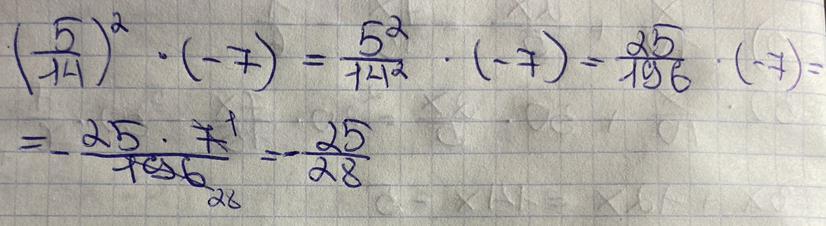 (5/14)² · (-7) = 5²/14² · (-7) = 25/196 · (-7) =
= - 25 · 7¹/196₂₈ = - 25/28